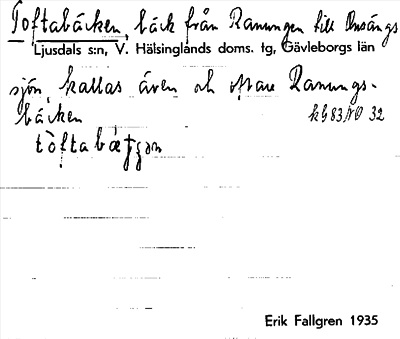 Toftabäcken, bäck från Ranungen till Onsängs
Ljusdals s:n, V. Hälsinglands doms. tg, Gävleborgs län
sjön, kallas även och oftare Ranungs-
bäcken
kG83NO 32
Erik Fallgren 1935